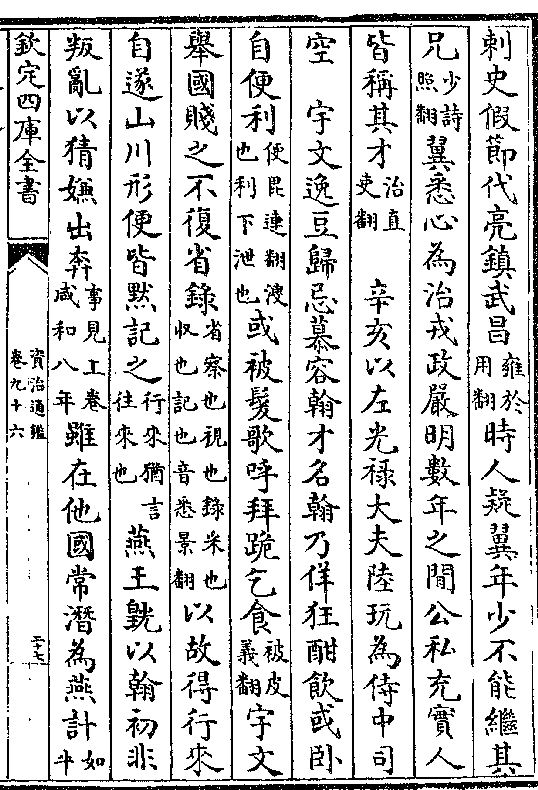 刺史假節代亮鎮武昌雍於用翻時人疑翼年少不能繼其
兄少詩照翻翼悉心為治戎政嚴明數年之間公私充實人
皆稱其才治直吏翻　辛亥以左光祿大夫陸玩為侍中司
空　宇文逸豆歸忌慕容翰才名翰乃佯狂酣飲或卧
自便利便毘連翻溲也利下泄也或被髮歌呼拜跪乞食被皮義翻宇文
舉國賤之不復省錄省察也視也錄采也收也記也音悉景翻以故得行來
自遂山川形便皆黙記之行來猶言往來也燕王皝以翰初非
叛亂以猜嫌出奔事見上卷咸和八年雖在他國常潛為燕計如牛
欽定四庫全書
資治通鑑
卷九十六
二十七